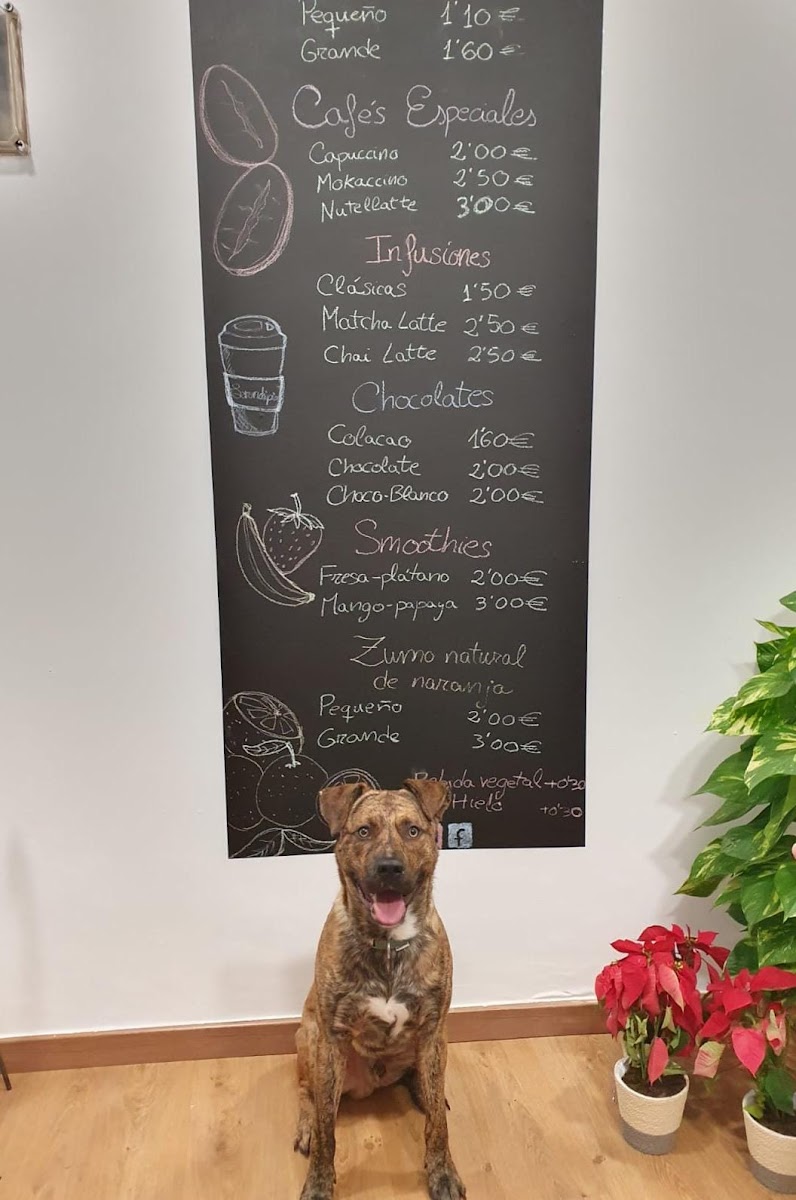 Pequeño 1'10 €
Grande 1'60 €
Cafés Especiales
Capuccino 2'00 €
Mokaccino 2'50 €
Nutellatte 3'00 €
Infusiones
Clásicas 1'50 €
Matcha Latte 2'50 €
Chai Latte 2'50 €
Chocolates
Colacao 1'60 €
Chocolate 2'00 €
Choco-Blanco 2'00 €
Smoothies
Fresa-plátano 2'00 €
Mango-papaya 3'00 €
Zumo natural
de naranja
Pequeño 2'00 €
Grande 3'00 €
Bebida vegetal +0'30
Hielo +0'30
f